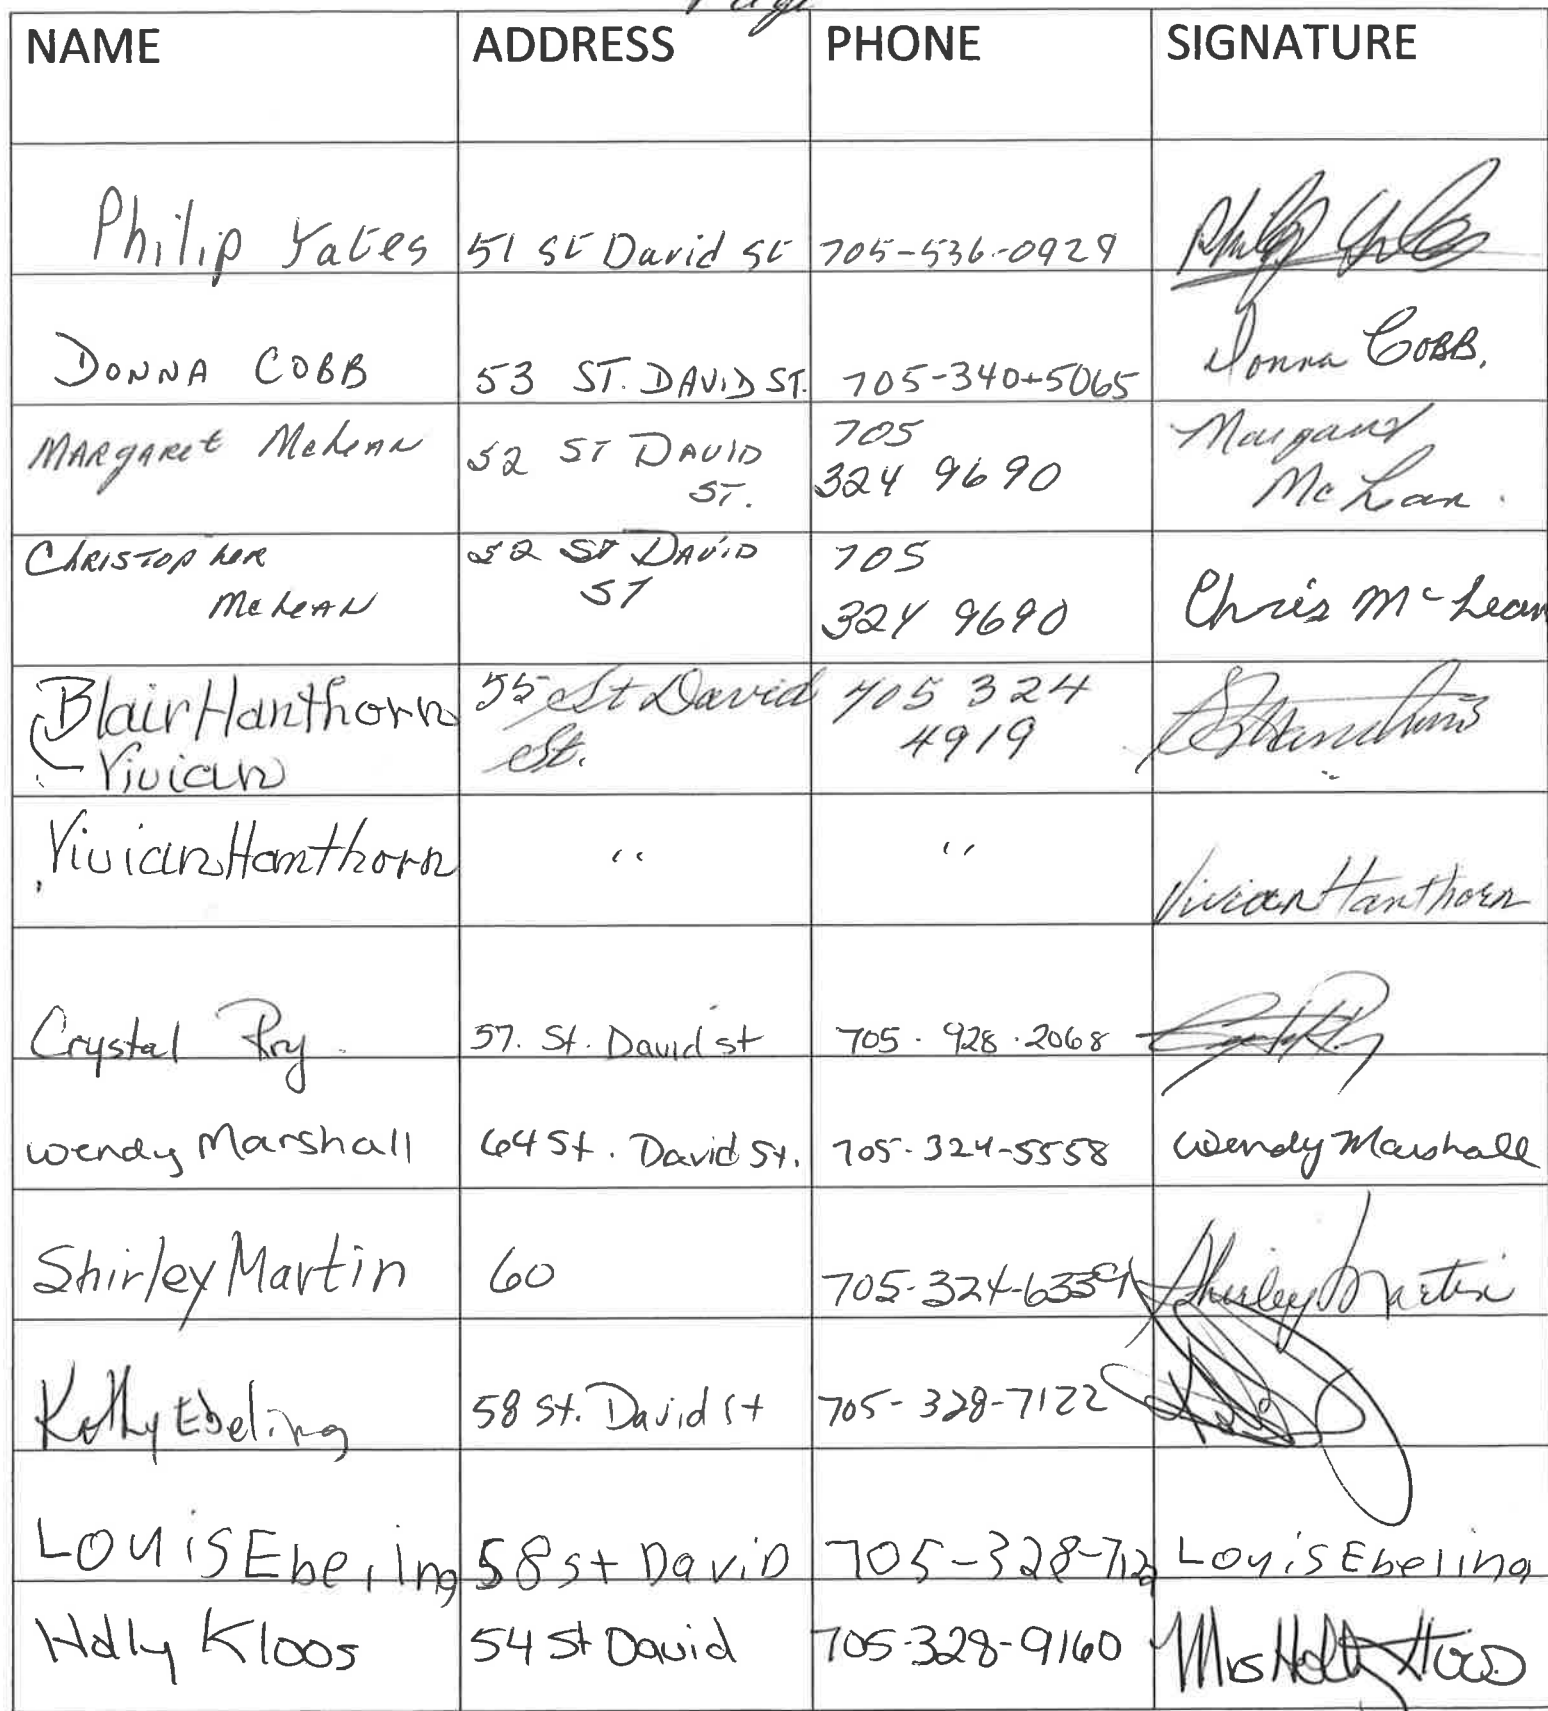 Page
NAME ADDRESS PHONE SIGNATURE
Philip Yates 51 St David St 705-536-0929 Philip Yates
DONNA COBB 53 ST. DAVID ST. 705-340-5065 Donna COBB.
MARGARET McLEAN 52 ST DAVID ST. 705 324 9690 Margaret McLean.
CHRISTOPHER McLEAN 52 ST DAVID ST 705 324 9690 Chris McLean
Blair Hanthorn 55 St David St. 705 324 4919 B Hanthorn
Vivian
Vivian Hanthorn " " Vivian Hanthorn
Crystal Pry 57. St. David st 705.928.2068
Wendy Marshall 64 St. David St. 705-324-5558 Wendy Marshall
Shirley Martin 60 705-324-6339 Shirley Martin
Kathy Ebeling 58 St. David St 705-328-7122
Louis Ebeling 58 St David 705-328-712 Louis Ebeling
Holly Kloos 54 St David 705-328-9160 Mrs Holly